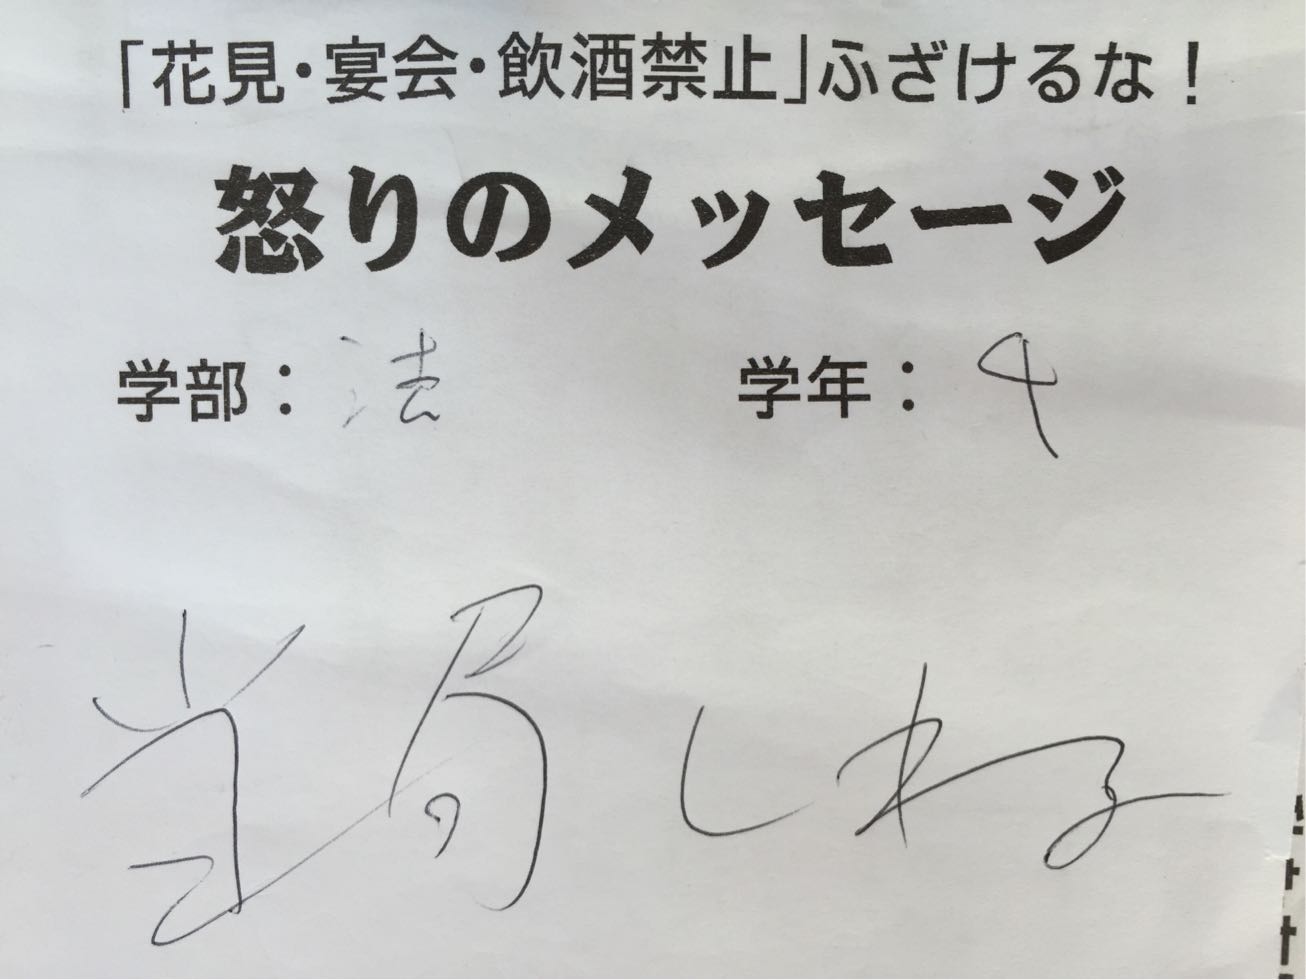 「花見・宴会・飲酒禁止」ふざけるな！
怒りのメッセージ
学部：法 学年：4
当局しね